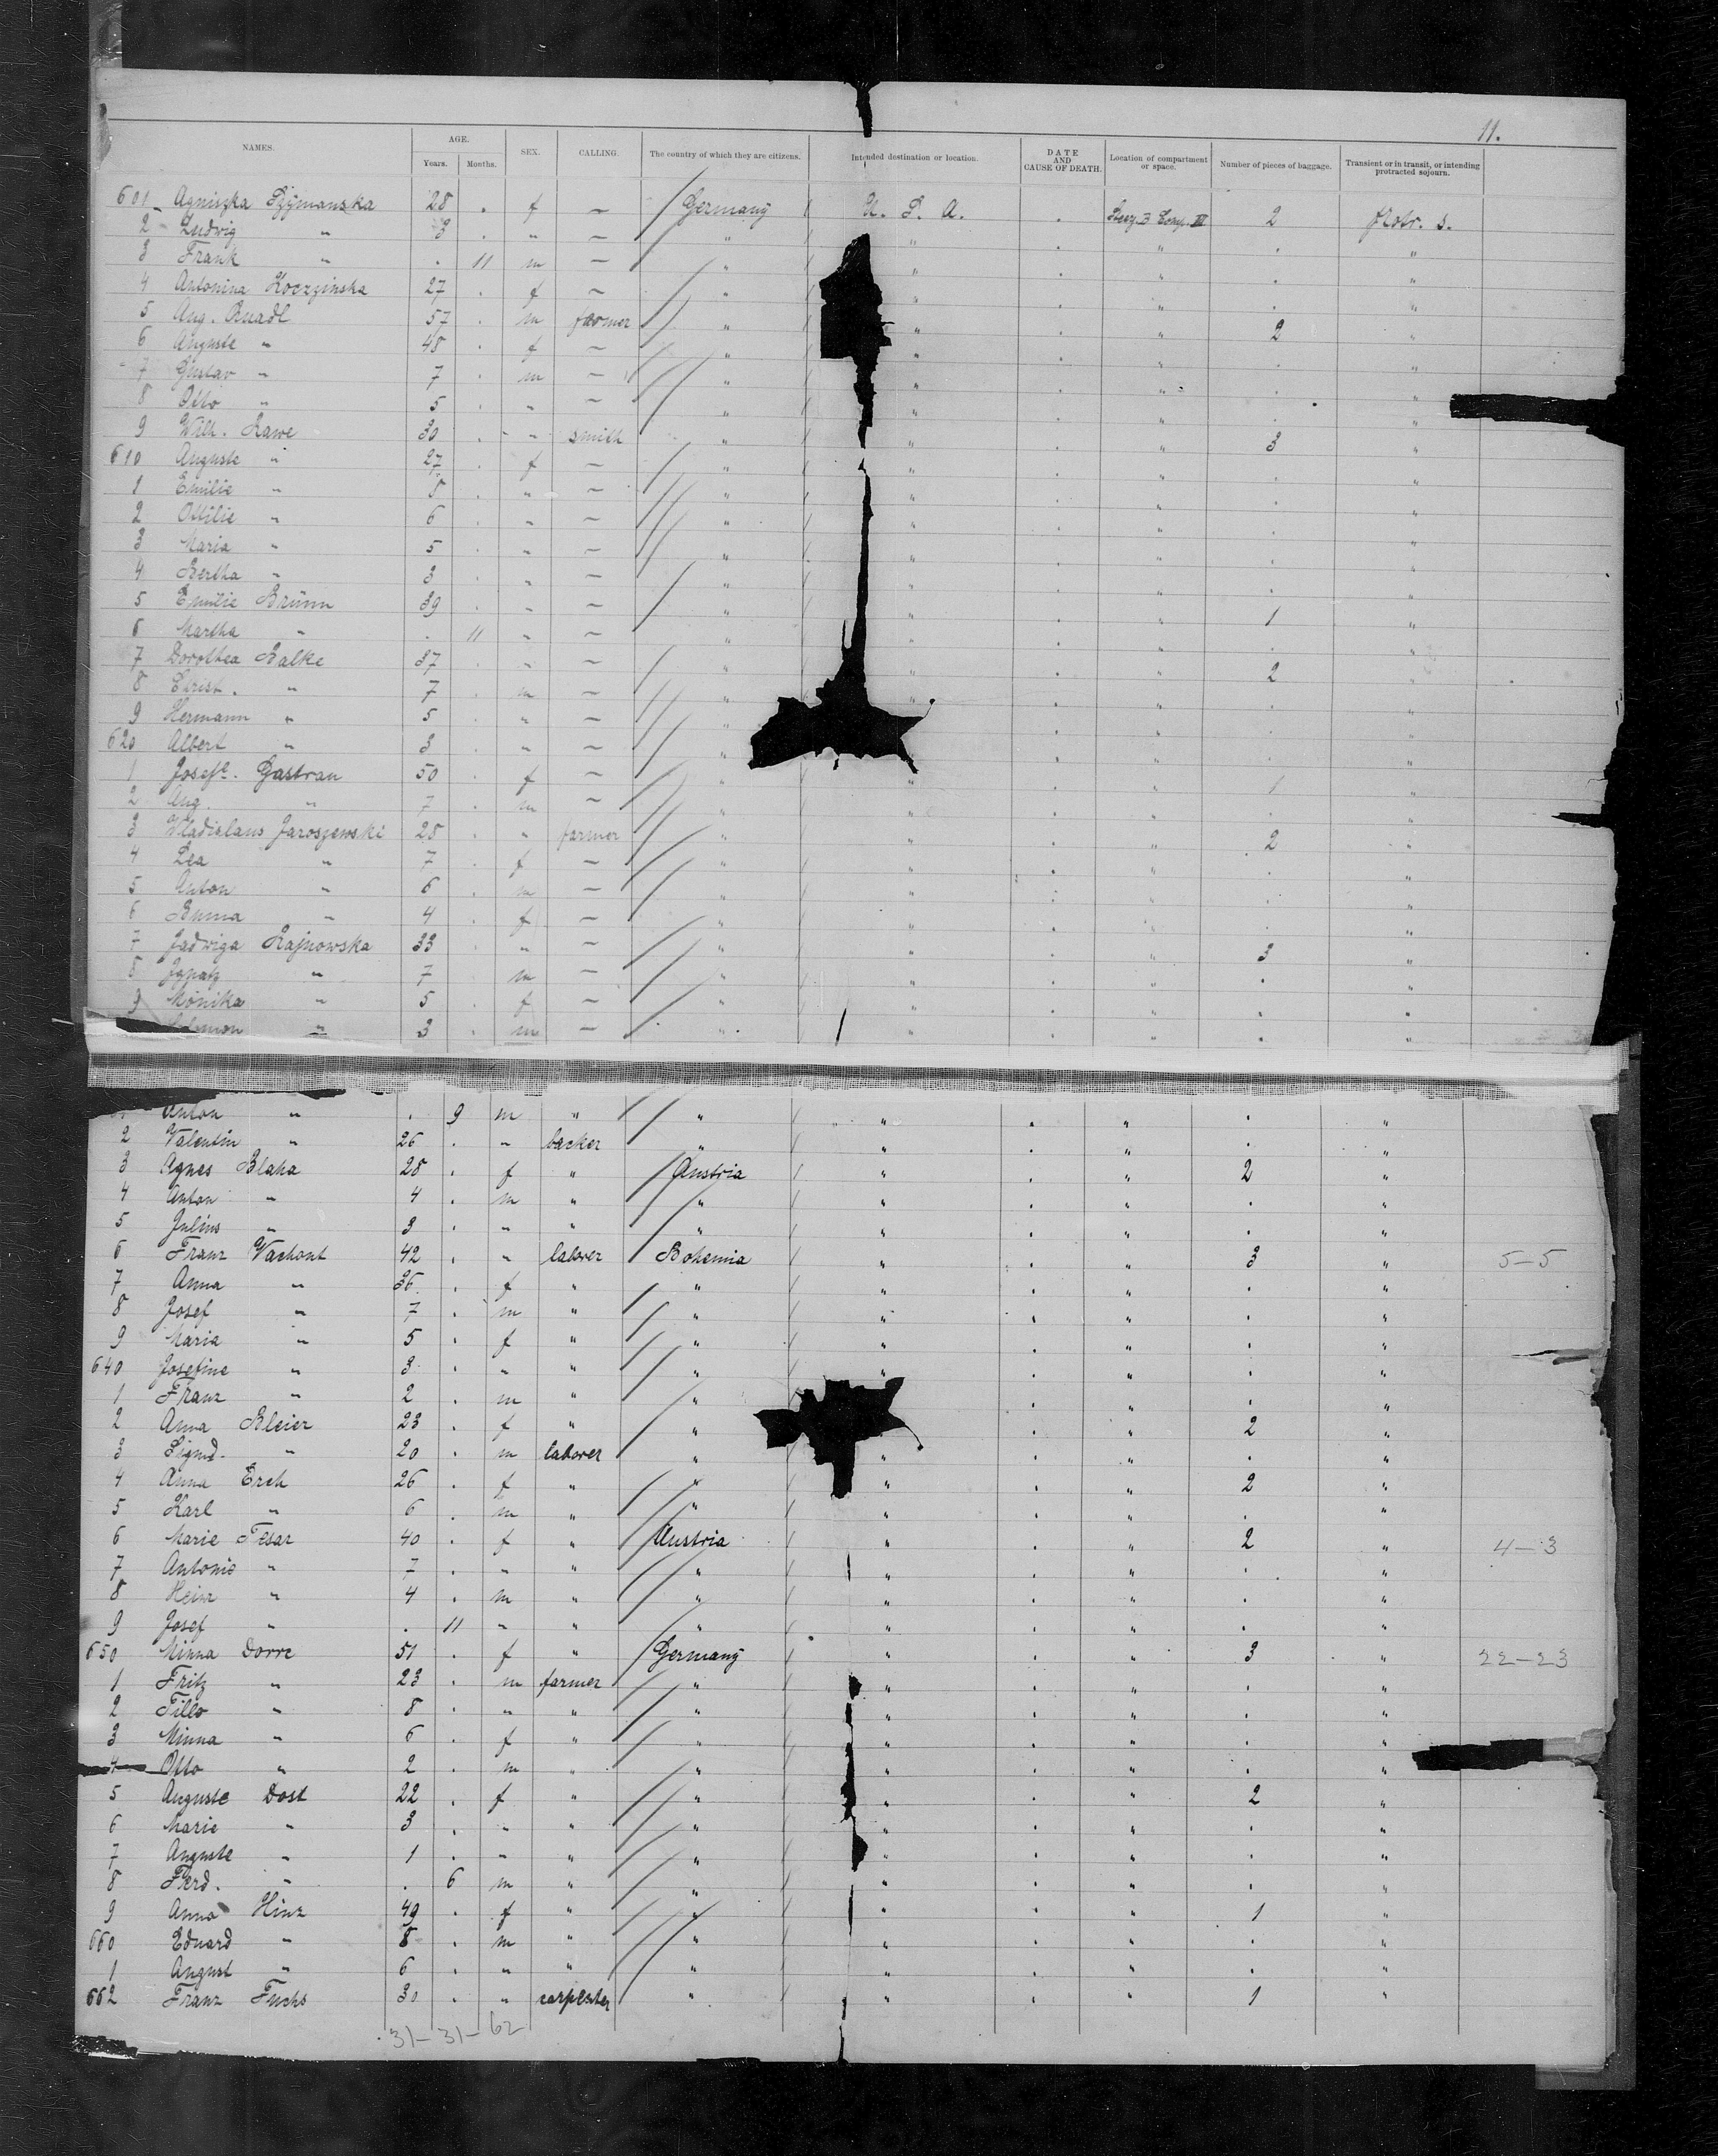 11.
NAMES. AGE. Years. Months. SEX. CALLING. The country of which they are citizens. Intended destination or location. DATE AND CAUSE OF DEATH. Location of compartment or space. Number of pieces of baggage. Transient or in transit, or intending protracted sojourn.
601 Agniszka Szymanska 28 . f — Germany U. S. A. . Steer. 3 Comp. III 2 protr. s.
2 Ludwig " 3 . " — " " . " . "
3 Frank " . 11 m — " " . " . "
4 Antonina Koczzinska 27 . f — " " . " . "
5 Aug. Ruadl 57 . m farmer " " . " 2 "
6 Auguste " 48 . f — " " . " . "
7 Gustav " 7 . m — " " . " . "
8 Otto " 5 . " — " " . " . "
9 Wilh. Rawe 30 . " smith " " . " 3 "
610 Auguste " 27 . f — " " . " . "
1 Emilie " 8 . " — " " . " . "
2 Ottilie " 6 . " — " " . " . "
3 Maria " 5 . " — " " . " . "
4 Bertha " 3 . " — " " . " . "
5 Emilie Brünn 39 . " — " " . " 1 "
6 Martha " . 11 " — " " . " . "
7 Dorothea Balke 37 . " — " " . " 2 "
8 Christ. " 7 . m — " " . " . "
9 Hermann " 5 . " — " " . " . "
620 Albert " 3 . " — " " . " . "
1 Josefe. Gastran 50 . f — " " . " 1 "
2 Aug. " 7 . m — " " . " . "
3 Wladislaus Jaroszewski 28 . " farmer " " . " 2 "
4 Lea " 7 . f — " " . " . "
5 Anton " 6 . m — " " . " . "
6 Anna " 4 . f — " " . " . "
7 Jadwiga Rajnowska 33 . " — " " . " 3 "
8 Ignatz " 7 . m — " " . " . "
9 Monika " 5 . f — " " . " . "
" 3 . m — " " . " . "
Anton " . 9 m " " " . " . "
2 Valentin " 26 . " backer " " . " . "
3 Agnes Blaha 28 . f " Austria " . " 2 "
4 Anton " 4 . m " " " . " . "
5 Julius " 3 . " " " " . " . "
6 Franz Vachont 42 . " laborer Bohemia " . " 3 " 5-5
7 Anna " 36 . f " " " . " . "
8 Josef " 7 . m " " " . " . "
9 Maria " 5 . f " " " . " . "
640 Josefine " 3 . " " " " . " . "
1 Franz " 2 . m " " " . " . "
2 Anna Bleier 23 . f " " " . " 2 "
3 Sigmd. " 20 . m laborer " " . " . "
4 Anna Erch 26 . f " " " . " 2 "
5 Karl " 6 . m " " " . " . "
6 Marie Tesar 40 . f " Austria " . " 2 " 4-3
7 Antonie " 7 . " " " " . " . "
8 Heinr " 4 . m " " " . " . "
9 Josef " . 11 " " " " . " . "
650 Minna Dorre 51 . f " Germany " . " 3 " 22-23
1 Fritz " 23 . m farmer " " . " . "
2 Tillo " 8 . " " " " . " . "
3 Minna " 6 . f " " " . " . "
4 Otto " 2 . m " " " . " . "
5 Auguste Dost 22 . f " " " . " 2 "
6 Marie " 3 . " " " " . " . "
7 Auguste " 1 . " " " " . " . "
8 Ferd. " . 6 m " " " . " . "
9 Anna Hinz 49 . f " " " . " 1 "
660 Eduard " 8 . m " " " . " . "
1 August " 6 . " " " " . " . "
662 Franz Fuchs 30 . " carpenter " " . " 1 "
31-31-62